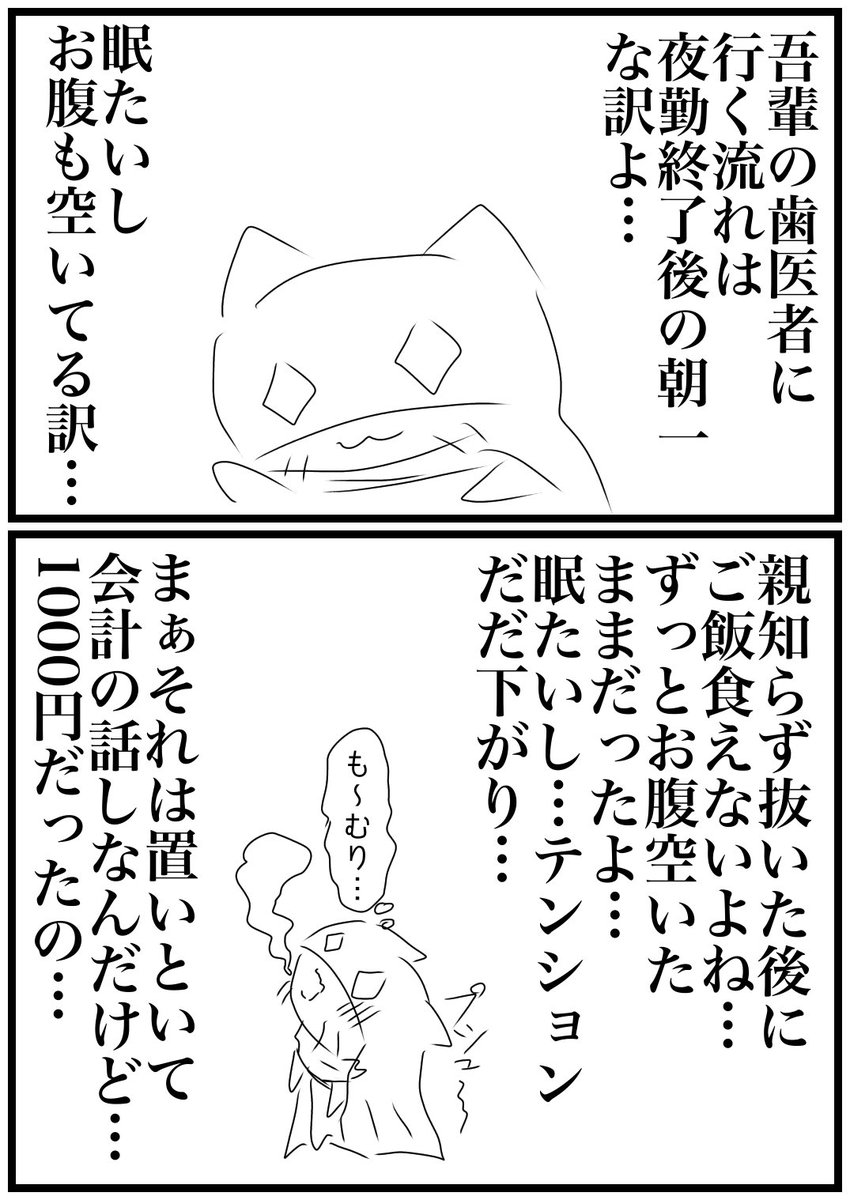 吾輩の歯医者に
行く流れは
夜勤終了後の朝一
な訳よ…
眠たいし
お腹も空いてる訳…
親知らず抜いた後に
ご飯食えないよね…
ずっとお腹空いた
ままだったよ…
眠たいし…テンション
だだ下がり…
も〜むり…
まぁそれは置いといて
会計の話しなんだけど…
1000円だったの…